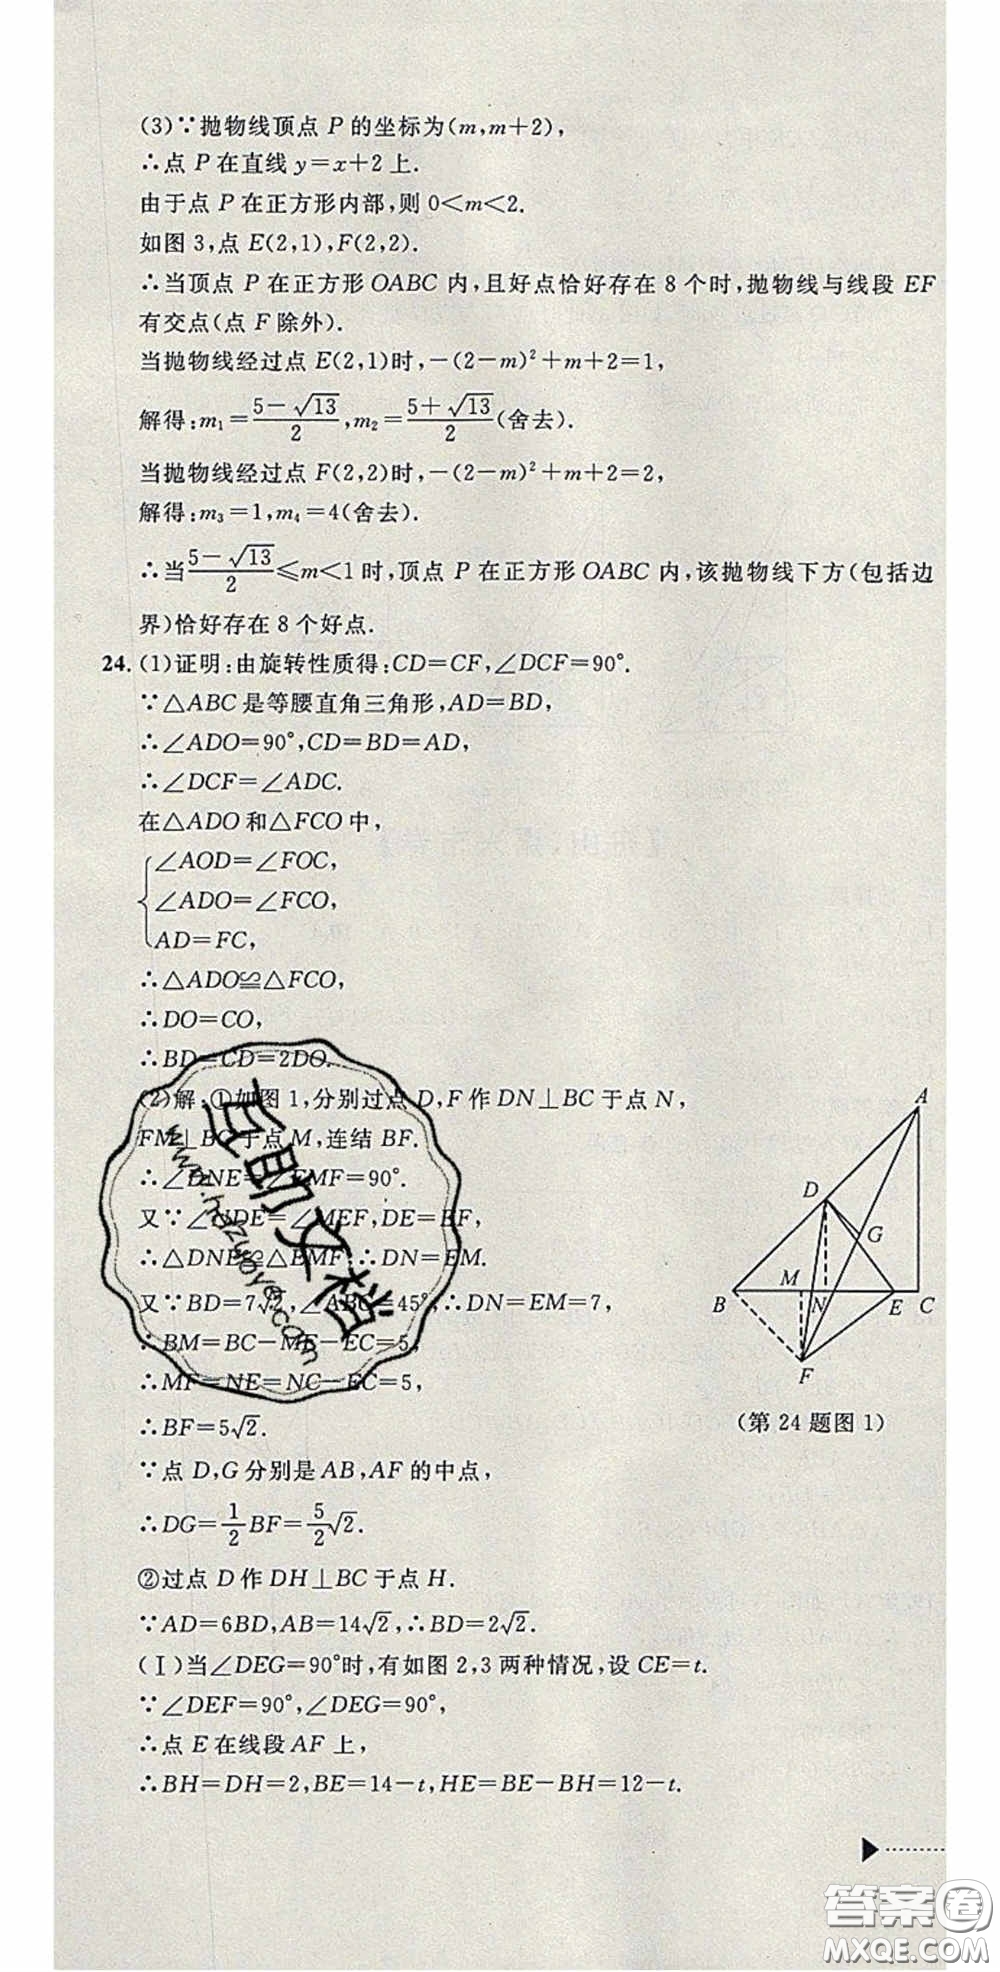 (3)∵抛物线顶点 P 的坐标为(m,m+2),
∴点 P 在直线 y=x+2 上.
由于点 P 在正方形内部,则 0<m<2.
如图 3,点 E(2,1),F(2,2).
∴当顶点 P 在正方形 OABC 内,且好点恰好存在 8 个时,抛物线与线段 EF
有交点(点 F 除外).
当抛物线经过点 E(2,1)时,-(2-m)²+m+2=1,
解得:m₁=(5-√13)/2,m₂=(5+√13)/2(舍去).
当抛物线经过点 F(2,2)时,-(2-m)²+m+2=2,
解得:m₃=1,m₄=4(舍去).
∴当(5-√13)/2≤m<1 时,顶点 P 在正方形 OABC 内,该抛物线下方(包括边
界)恰好存在 8 个好点.
24. (1)证明:由旋转性质得:CD=CF,∠DCF=90°.
∵△ABC 是等腰直角三角形,AD=BD,
∴∠ADO=90°,CD=BD=AD,
∴∠DCF=∠ADC.
在△ADO 和△FCO 中,
∠AOD=∠FOC,
∠ADO=∠FCO,
AD=FC,
∴△ADO≌△FCO,
∴DO=CO,
∴BD=CD=2DO.
(2)解:①如图 1,分别过点 D,F 作 DN⊥BC 于点 N,
FM⊥BC 于点 M,连结 BF.
∴∠DNE=∠EMF=90°.
又∵∠NDE=∠MEF,DE=EF,
∴△DNE≌△EMF,∴DN=EM.
又∵BD=7√2,∠ABC=45°,∴DN=EM=7,
∴BM=BC-ME-EC=5,
∴MF=NE=NC-EC=5,
∴BF=5√2.
∵点 D,G 分别是 AB,AF 的中点,
∴DG=1/2 BF=5/2 √2.
②过点 D 作 DH⊥BC 于点 H.
∵AD=6BD,AB=14√2,∴BD=2√2.
(Ⅰ)当∠DEG=90°时,有如图 2,3 两种情况,设 CE=t.
∵∠DEF=90°,∠DEG=90°,
∴点 E 在线段 AF 上,
∴BH=DH=2,BE=14-t,HE=BE-BH=12-t.
A
D
G
M
B
N
E
C
F
(第 24 题图 1)
答案圈
MXQE.COM